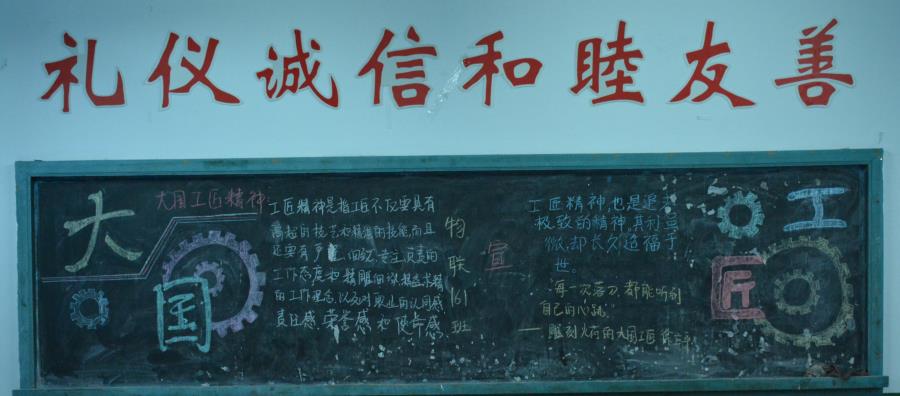 礼仪诚信和睦友善
大国
大国工匠精神
工匠精神是指工匠不仅要具有
高超的技艺和精湛的技能,而且
还要有严谨、细致、专注、负责的
工作态度和精雕细琢、精益求精
的工作理念,以及对职业的认同感
责任感、荣誉感和使命感
物联161班
宣
工匠精神也是追求
极致的精神,其利虽
微,却长久造福于
世。
"每一次落刀,都能听到
自己的心跳。"
——雕刻火药的大国工匠 徐立平
工匠